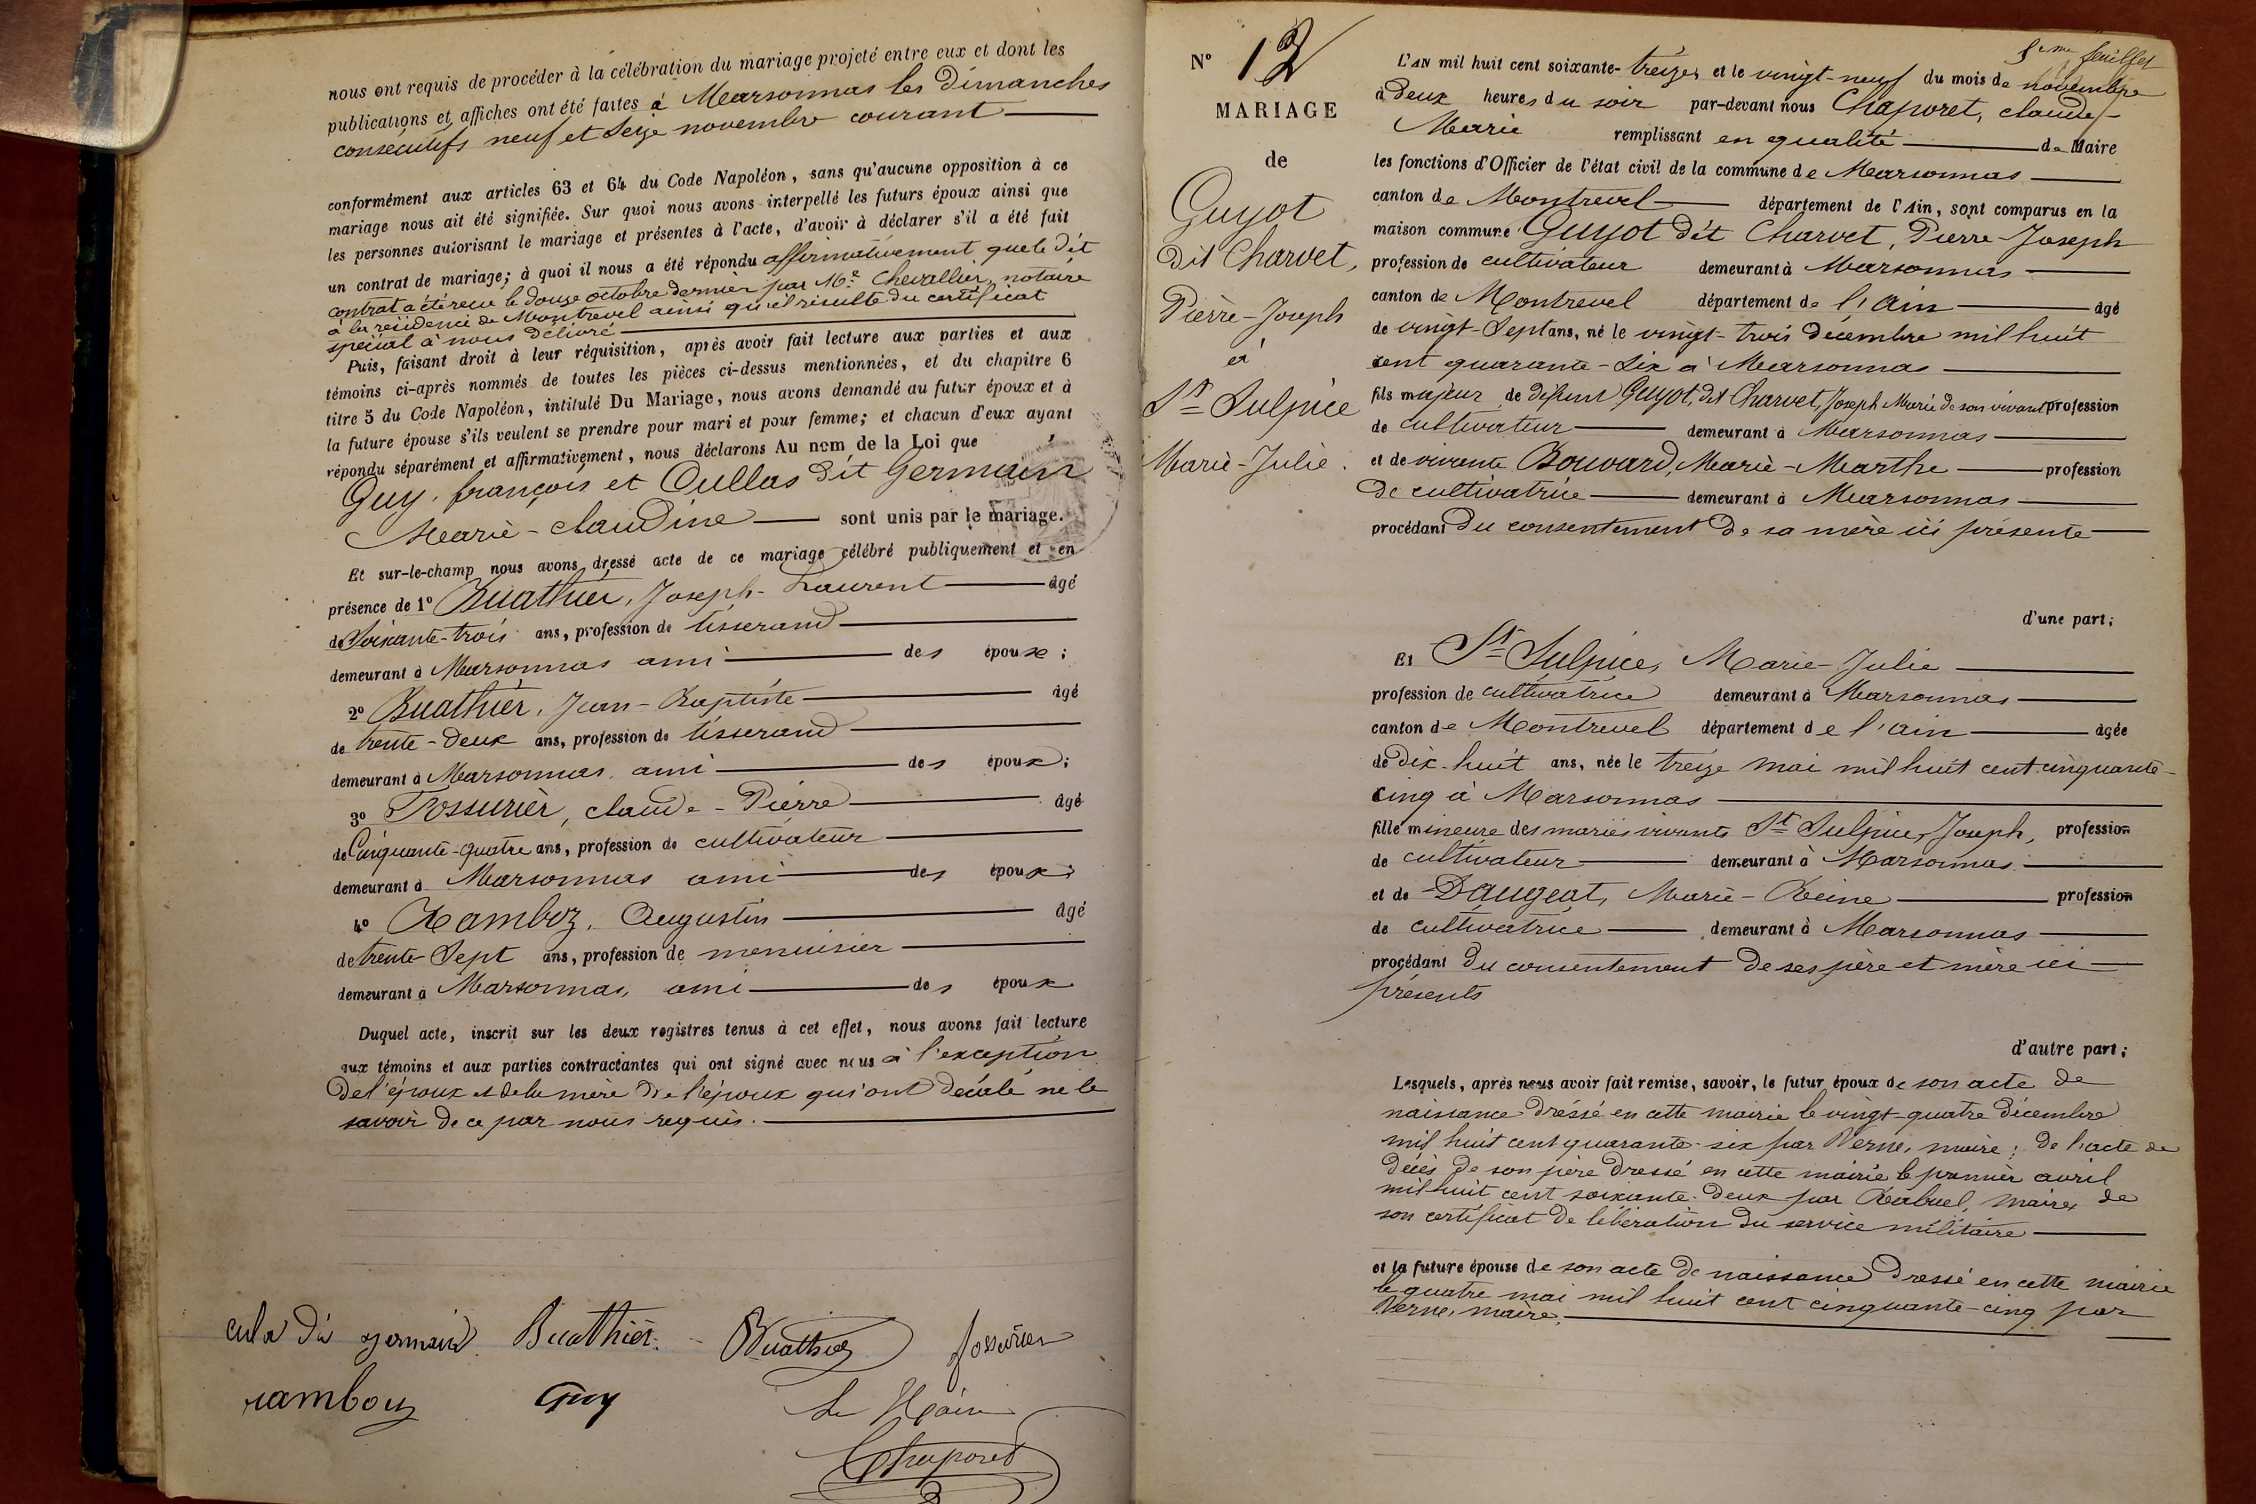 nous ont requis de procéder à la célébration du mariage projeté entre eux et dont les
publications et affiches ont été faites à Marsonnas les dimanches
consécutifs neuf et seize novembre courant
conformément aux articles 63 et 64 du Code Napoléon, sans qu'aucune opposition à ce
mariage nous ait été signifiée. Sur quoi nous avons interpellé les futurs époux ainsi que
les personnes autorisant le mariage et présentes à l'acte, d'avoir à déclarer s'il a été fait
un contrat de mariage; à quoi il nous a été répondu affirmativement que le dit
contrat a été reçu le douze octobre dernier par Me Chevallier, notaire
à la résidence de Montrevel ainsi qu'il résulte du certificat
spécial à nous délivré
Puis, faisant droit à leur réquisition, après avoir fait lecture aux parties et aux
témoins ci-après nommés de toutes les pièces ci-dessus mentionnées, et du chapitre 6
titre 5 du Code Napoléon, intitulé Du Mariage, nous avons demandé au futur époux et à
la future épouse s'ils veulent se prendre pour mari et pour femme; et chacun d'eux ayant
répondu séparément et affirmativement, nous déclarons Au nom de la Loi que
Guy, françois et Cullas dit Germain
Marie-claudine sont unis par le mariage.
Et sur-le-champ nous avons dressé acte de ce mariage célébré publiquement et en
présence de 1° Buathier, Joseph-Laurent âgé
de Soixante-trois ans, profession de tisserand
demeurant à Marsonnas ami des époux;
2° Buathier, Jean-Baptiste âgé
de trente-deux ans, profession de tisserand
demeurant à Marsonnas, ami des époux;
3° Fossurier, claude-Pierre âgé
de Cinquante-quatre ans, profession de cultivateur
demeurant à Marsonnas ami des époux;
4° Ramboz, Augustin âgé
de trente-Sept ans, profession de menuisier
demeurant à Marsonnas, ami des époux
Duquel acte, inscrit sur les deux registres tenus à cet effet, nous avons fait lecture
aux témoins et aux parties contractantes qui ont signé avec nous à l'exception
de l'époux et de la mère de l'époux qui ont déclaré ne le
savoir de ce par nous requis.
cula dit germain Buathier Buathier fossurier
ramboz Guy Le Maire
Chaporet
5eme feuillet
N° 12
MARIAGE
de
Guyot
dit Charvet,
Pierre-Joseph
et
St Sulpice
Marie-Julie.
L'AN mil huit cent soixante-treize, et le vingt-neuf du mois de novembre
à deux heures du soir par-devant nous Chaporet, claude-
Marie remplissant en qualité de Maire
les fonctions d'Officier de l'état civil de la commune de Marsonnas
canton de Montrevel département de l'Ain, sont comparus en la
maison commune Guyot dit Charvet, Pierre-Joseph
profession de cultivateur demeurant à Marsonnas
canton de Montrevel département de l'ain âgé
de vingt-Sept ans, né le vingt-trois décembre mil huit
cent quarante-Six à Marsonnas
fils majeur de défunt Guyot, dit Charvet, Joseph Marie de son vivant profession
de cultivateur demeurant à Marsonnas
et de vivante Bouvard, Marie-Marthe profession
de cultivatrice demeurant à Marsonnas
procédant du consentement de sa mère ici présente
d'une part;
Et St Sulpice, Marie-Julie
profession de cultivatrice demeurant à Marsonnas
canton de Montrevel département de l'ain âgée
de dix-huit ans, née le treize mai mil huit cent cinquante-
cinq à Marsonnas
fille mineure des mariés vivants St Sulpice, Joseph, profession
de cultivateur demeurant à Marsonnas
et de Daugeat, Marie-Reine profession
de cultivatrice demeurant à Marsonnas
procédant du consentement de ses père et mère ici
présents
d'autre part;
Lesquels, après nous avoir fait remise, savoir, le futur époux de son acte de
naissance dressé en cette mairie le vingt-quatre décembre
mil huit cent quarante-six par Verne, maire; de l'acte de
décès de son père dressé en cette mairie le premier avril
mil huit cent soixante-deux par Rabuel, maire, de
son certificat de libération du service militaire
et la future épouse de son acte de naissance dressé en cette mairie
le quatre mai mil huit cent cinquante-cinq par
Verne, maire.